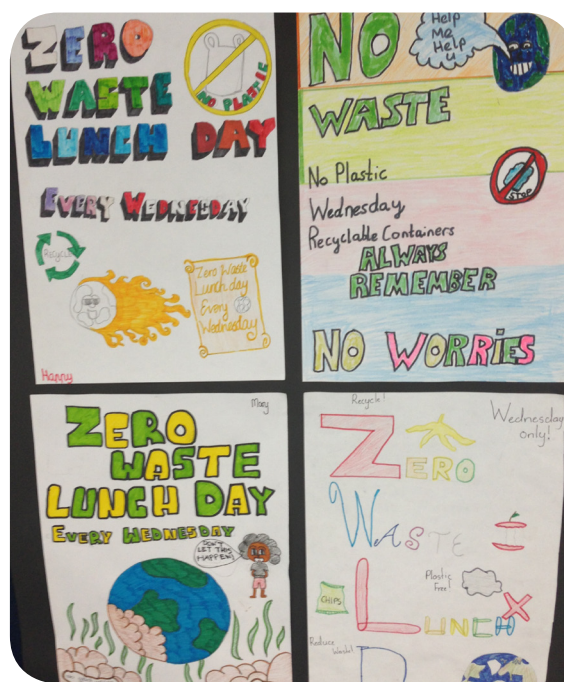 ZERO
WASTE
LUNCH DAY
NO PLASTIC
EVERY WEDNESDAY
Recycle
Zero Waste
Lunch day
Every
Wednesday
Hanny
NO
Help
Me
Help
u
WASTE
No Plastic
STOP
Wednesday
Recyclable Containers
ALWAYS
REMEMBER
NO WORRIES
Macy
ZERO
WASTE
LUNCH DAY
EVERY WEDNESDAY
DON'T
LET THIS
HAPPEN!
Recycle!
Wednesday
only!
ZERO
WASTE
Plastic
Free!
CHIPS
LUNCH
Reduce
Waste!
D